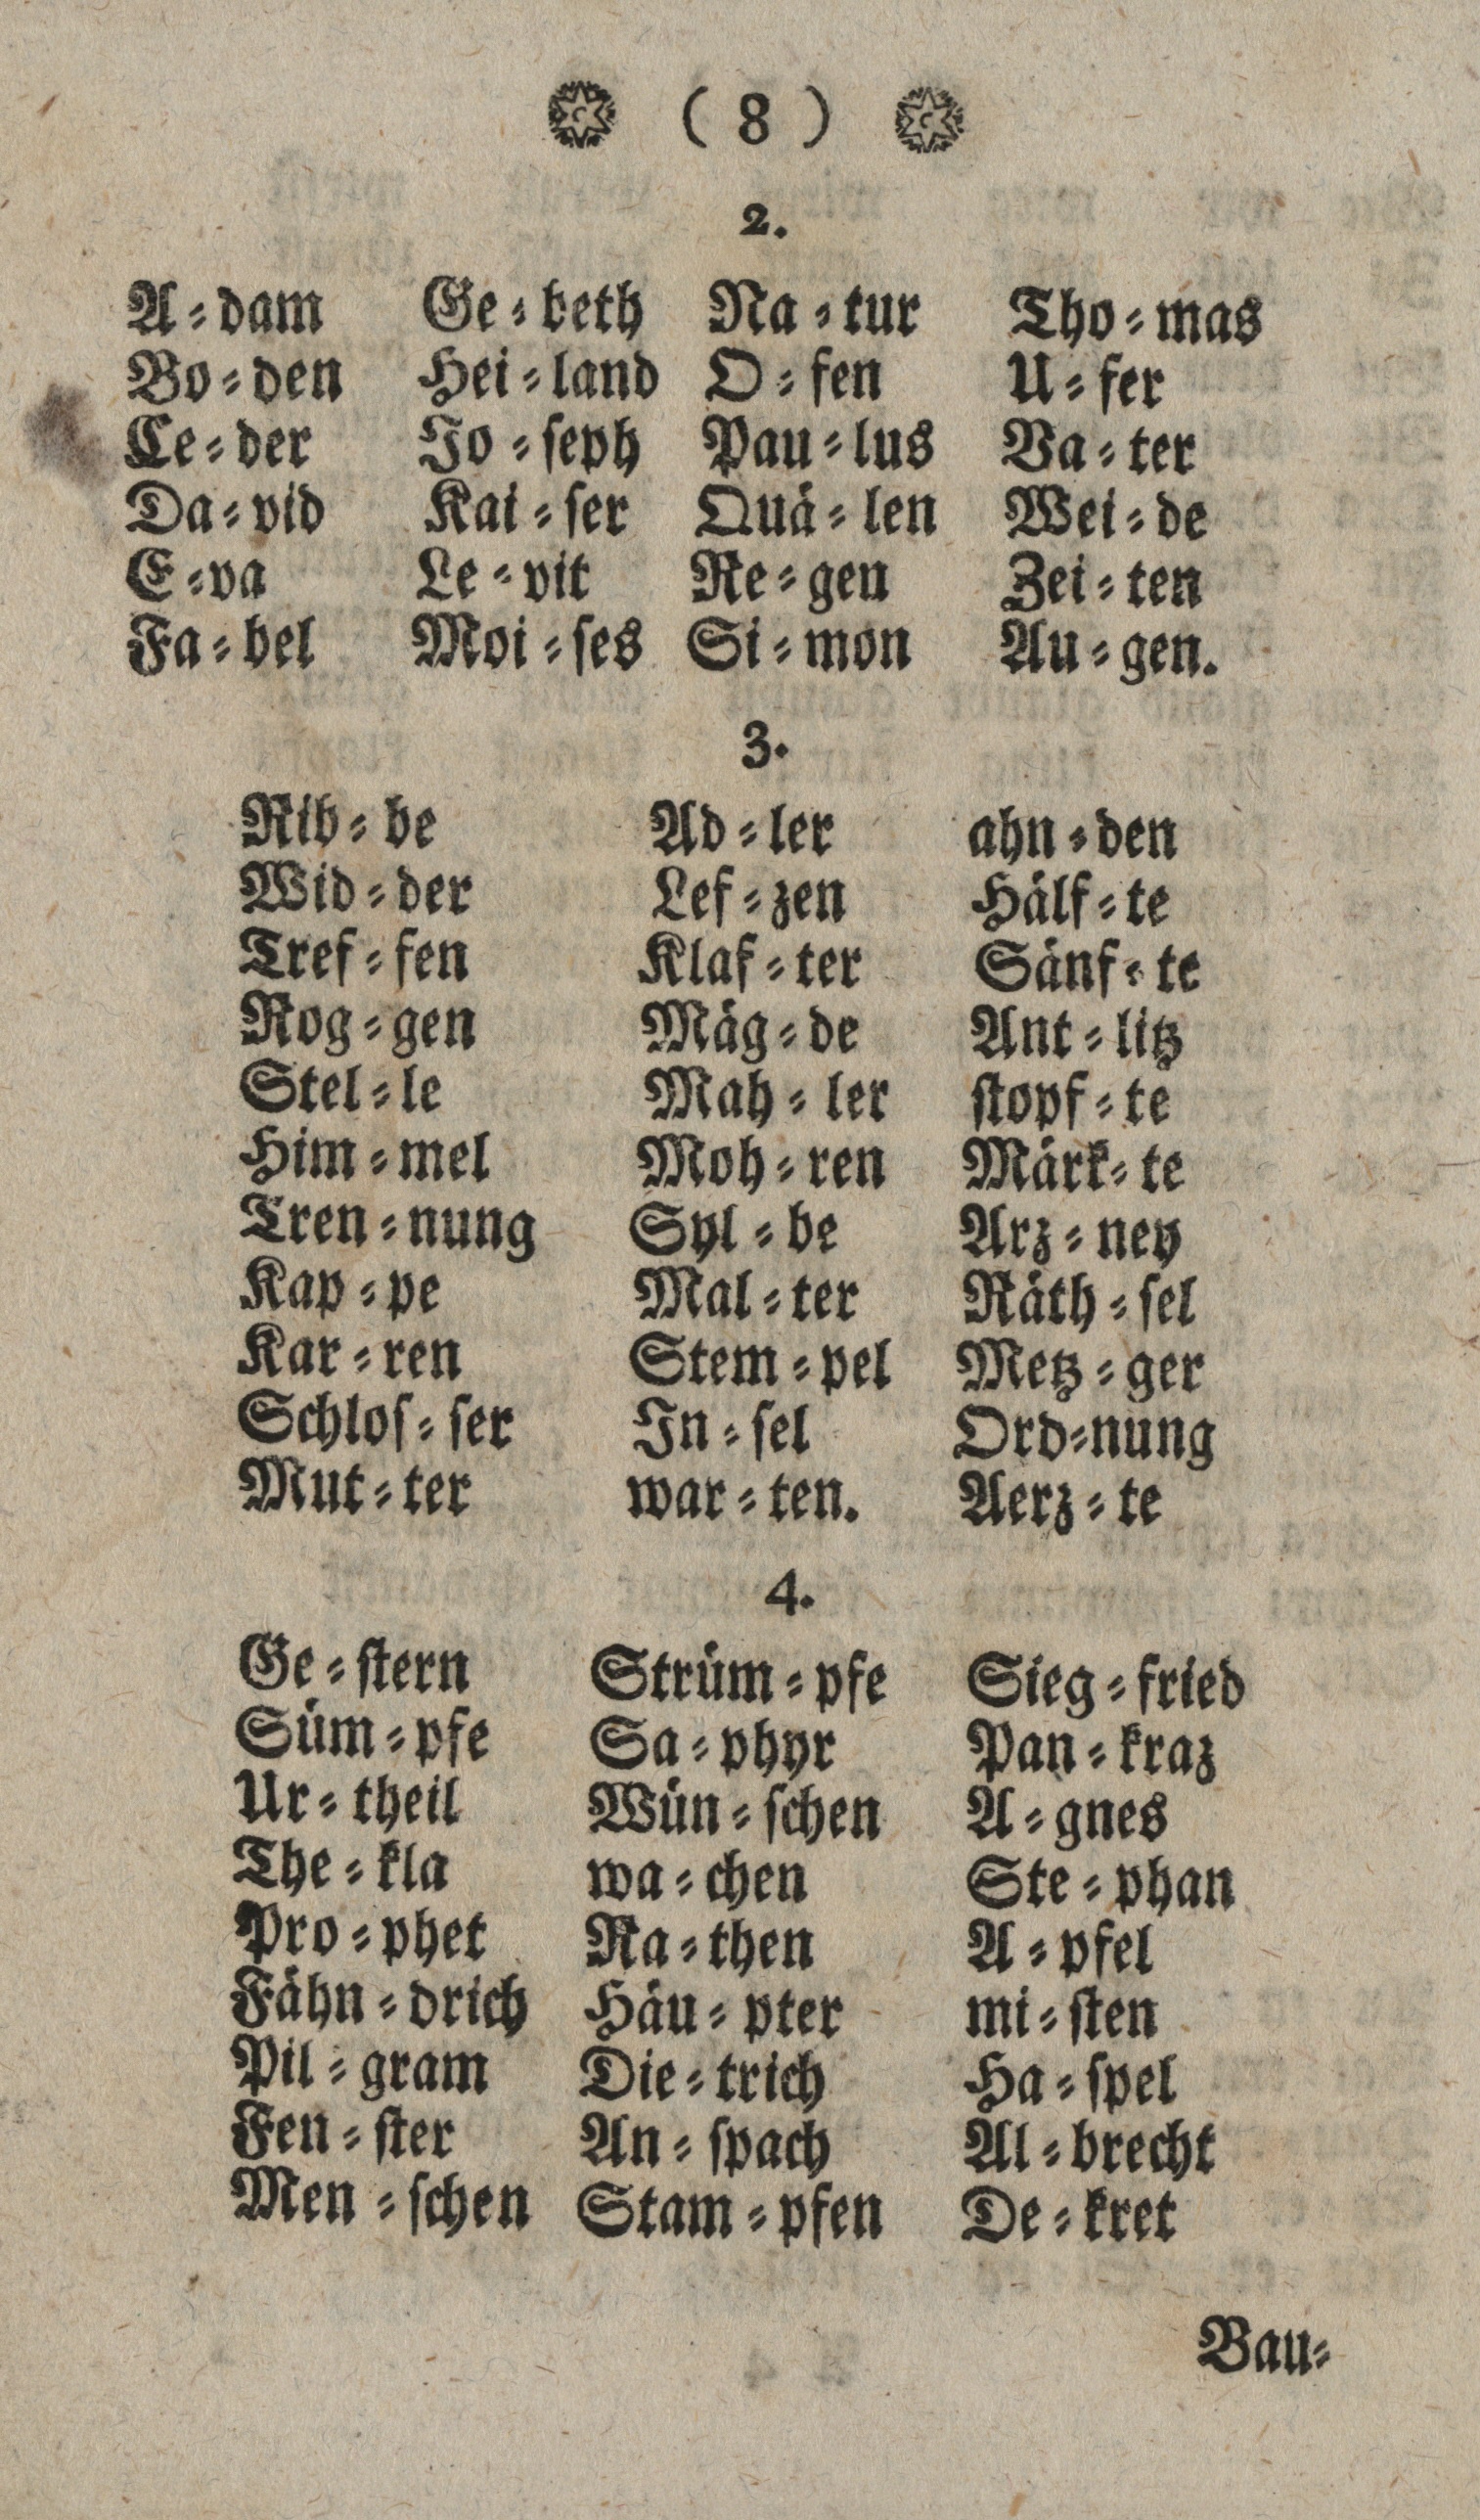 ( 8 )
2.
A⸗dam Ge⸗beth Na⸗tur Tho⸗mas
Bo⸗den Hei⸗land O⸗fen U⸗fer
Ce⸗der Jo⸗ſeph Pau⸗lus Va⸗ter
Da⸗vid Kai⸗ſer Quä⸗len Wei⸗de
E⸗va Le⸗vit Re⸗gen Zei⸗ten
Fa⸗bel Moi⸗ſes Si⸗mon Au⸗gen.
3.
Rib⸗be Ad⸗ler ahn⸗den
Wid⸗der Lef⸗zen Hälf⸗te
Tref⸗fen Klaf⸗ter Sänf⸗te
Rog⸗gen Mäg⸗de Ant⸗litz
Stel⸗le Mah⸗ler ſtopf⸗te
Him⸗mel Moh⸗ren Märk⸗te
Tren⸗nung Syl⸗be Arz⸗ney
Kap⸗pe Mal⸗ter Räth⸗ſel
Kar⸗ren Stem⸗pel Metz⸗ger
Schloſ⸗ſer In⸗ſel Ord⸗nung
Mut⸗ter war⸗ten. Aerz⸗te
4.
Ge⸗ſtern Strüm⸗pfe Sieg⸗fried
Süm⸗pfe Sa⸗phyr Pan⸗kraz
Ur⸗theil Wün⸗ſchen A⸗gnes
The⸗kla wa⸗chen Ste⸗phan
Pro⸗phet Ra⸗then A⸗pfel
Fähn⸗drich Häu⸗pter mi⸗ſten
Pil⸗gram Die⸗trich Ha⸗ſpel
Fen⸗ſter An⸗ſpach Al⸗brecht
Men⸗ſchen Stam⸗pfen De⸗kret
Bau⸗